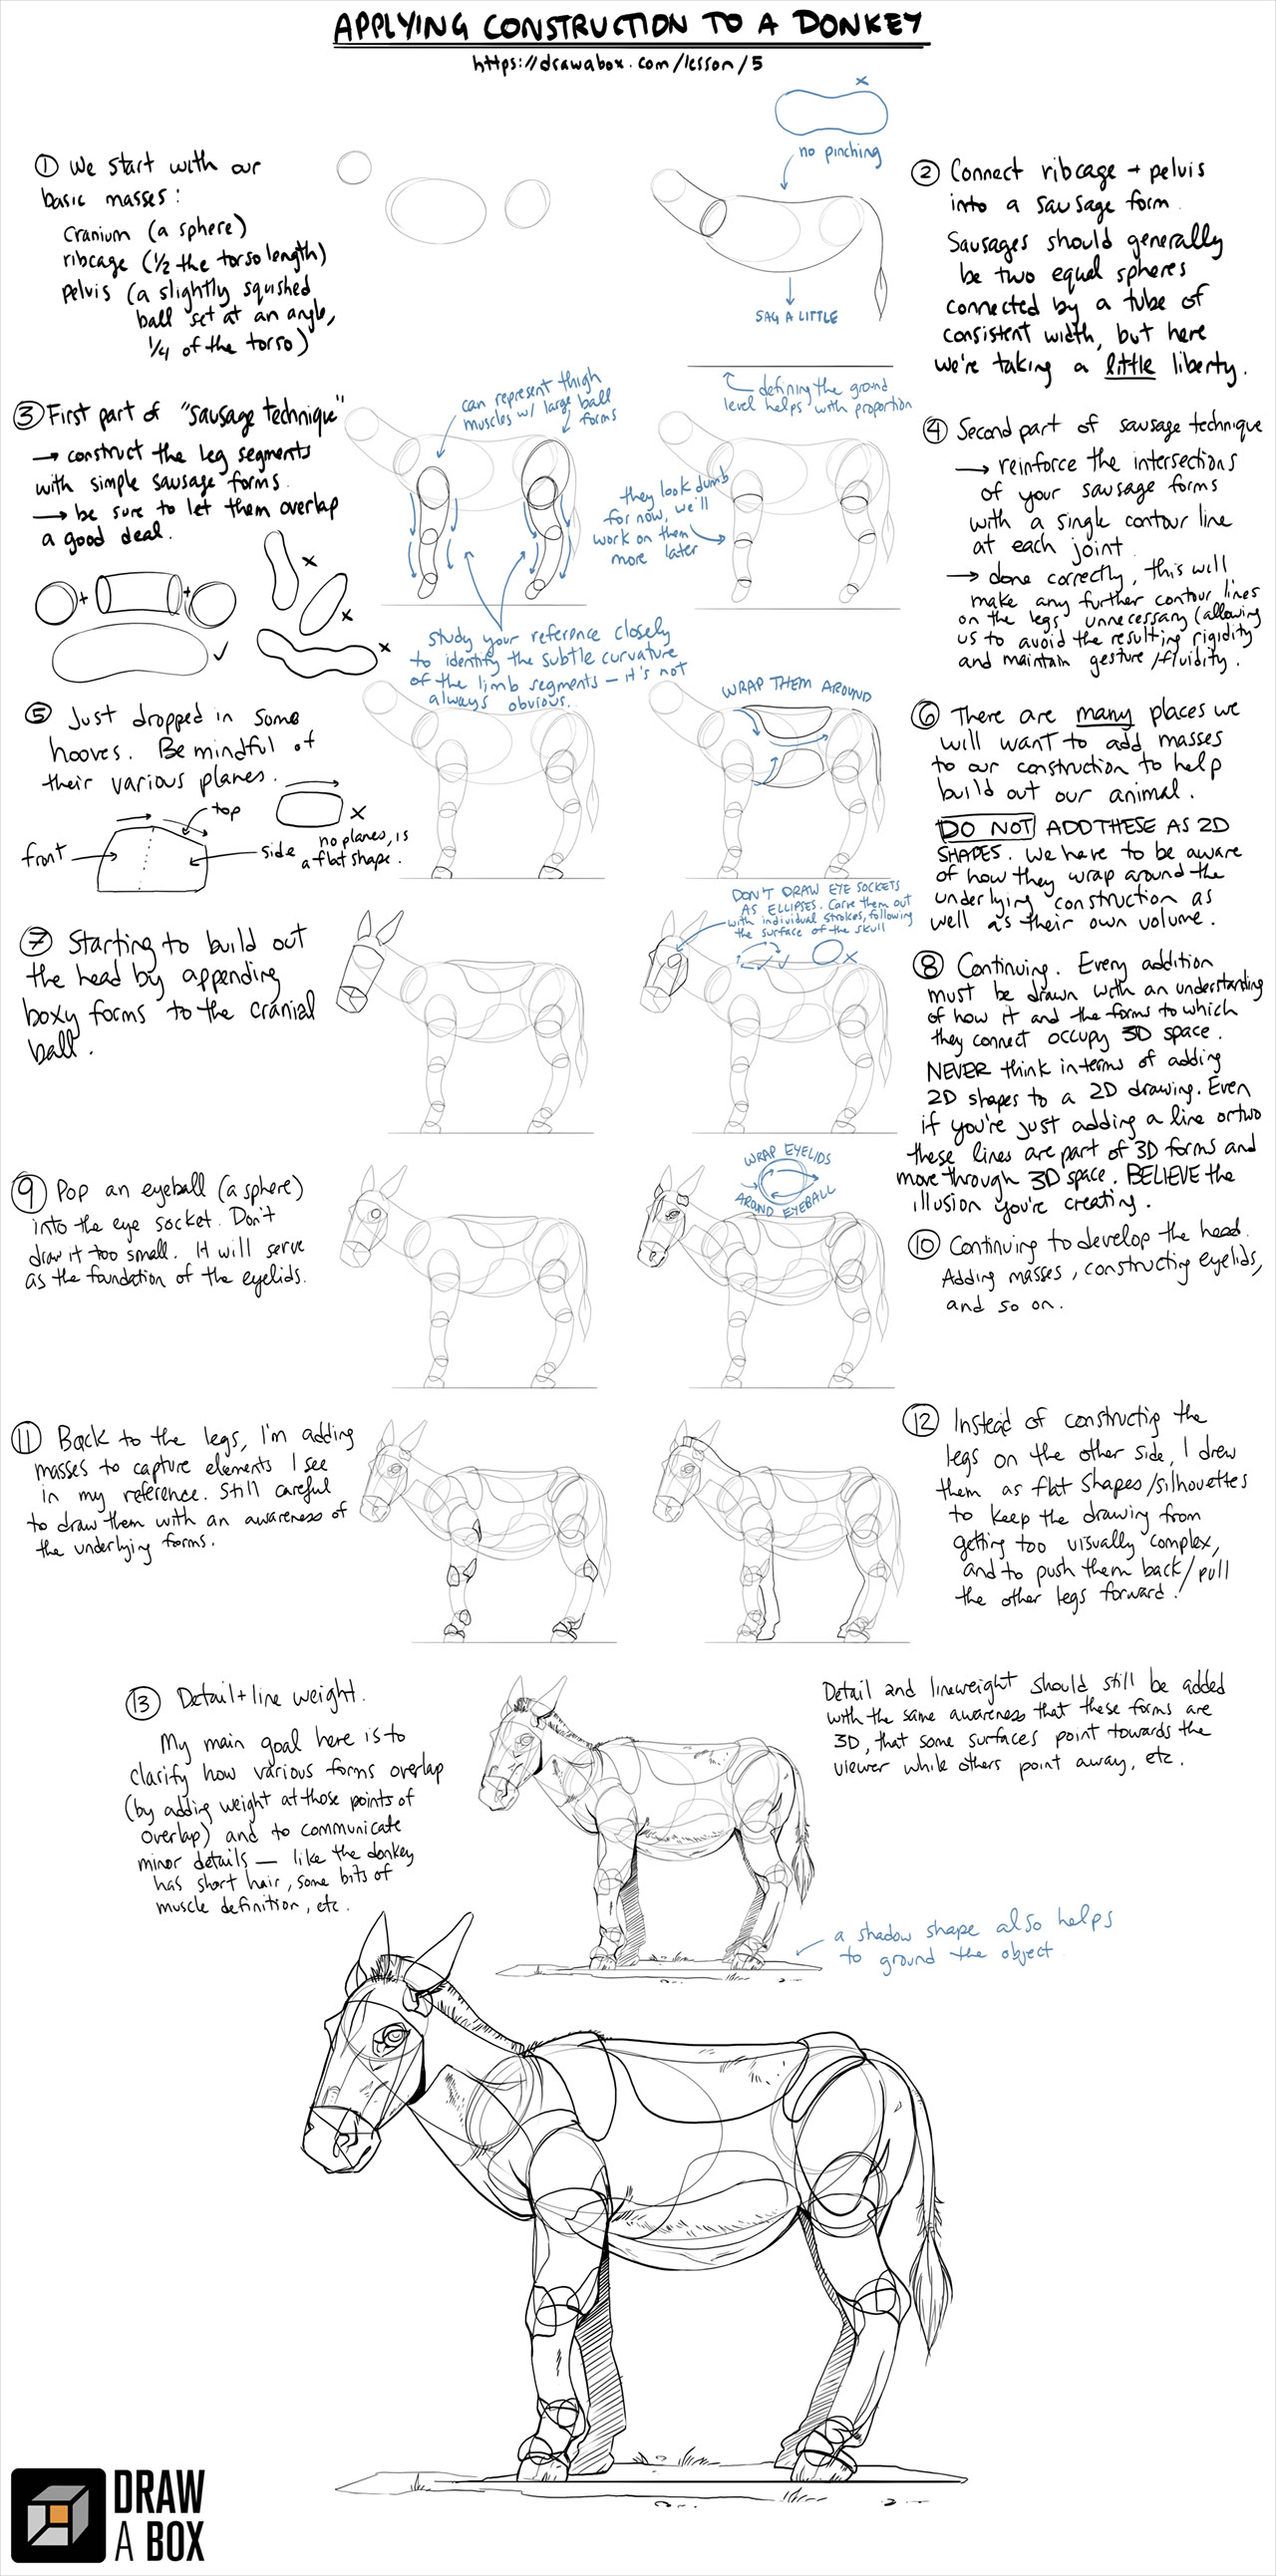 APPLYING CONSTRUCTION TO A DONKEY
https://drawabox.com/lesson/5
① We start with our
basic masses:
Cranium (a sphere)
ribcage (1/2 the torso length)
pelvis (a slightly squished
ball set at an angle,
1/4 of the torso)
x
no pinching
SAG A LITTLE
defining the ground
level helps with proportion
② Connect ribcage + pelvis
into a sausage form.
Sausages should generally
be two equal spheres
connected by a tube of
consistent width, but here
we're taking a little liberty.
③ First part of "sausage technique"
→ construct the leg segments
with simple sausage forms.
→ be sure to let them overlap
a good deal.
+
+
x
x
x
can represent thigh
muscles w/ large ball
forms
study your reference closely
to identify the subtle curvature
of the limb segments — it's not
always obvious.
they look dumb
for now, we'll
work on them
more later
④ Second part of sausage technique
→ reinforce the intersections
of your sausage forms
with a single contour line
at each joint
→ done correctly, this will
make any further contour lines
on the legs unnecessary (allowing
us to avoid the resulting rigidity
and maintain gesture/fluidity.
⑤ Just dropped in some
hooves. Be mindful of
their various planes.
top
front
side
x
no planes, is
a flat shape.
WRAP THEM AROUND
⑥ There are many places we
will want to add masses
to our construction to help
build out our animal.
DO NOT ADD THESE AS 2D
SHAPES. We have to be aware
of how they wrap around the
underlying construction as
well as their own volume.
⑦ Starting to build out
the head by appending
boxy forms to the cranial
ball.
DON'T DRAW EYE SOCKETS
AS ELLIPSES. Carve them out
with individual strokes, following
the surface of the skull
x
⑧ Continuing. Every addition
must be drawn with an understanding
of how it and the forms to which
they connect occupy 3D space.
NEVER think in terms of adding
2D shapes to a 2D drawing. Even
if you're just adding a line or two
these lines are part of 3D forms and
move through 3D space. BELIEVE the
illusion you're creating.
⑨ Pop an eyeball (a sphere)
into the eye socket. Don't
draw it too small. It will serve
as the foundation of the eyelids.
WRAP EYELIDS
AROUND EYEBALL
⑩ Continuing to develop the head.
Adding masses, constructing eyelids,
and so on.
⑪ Back to the legs, I'm adding
masses to capture elements I see
in my reference. Still careful
to draw them with an awareness of
the underlying forms.
⑫ Instead of constructing the
legs on the other side, I drew
them as flat shapes/silhouettes
to keep the drawing from
getting too visually complex,
and to push them back/pull
the other legs forward!
⑬ Detail + line weight.
My main goal here is to
clarify how various forms overlap
(by adding weight at those points of
overlap) and to communicate
minor details — like the donkey
has short hair, some bits of
muscle definition, etc.
Detail and lineweight should still be added
with the same awareness that these forms are
3D, that some surfaces point towards the
viewer while others point away, etc.
a shadow shape also helps
to ground the object
DRAW
A BOX